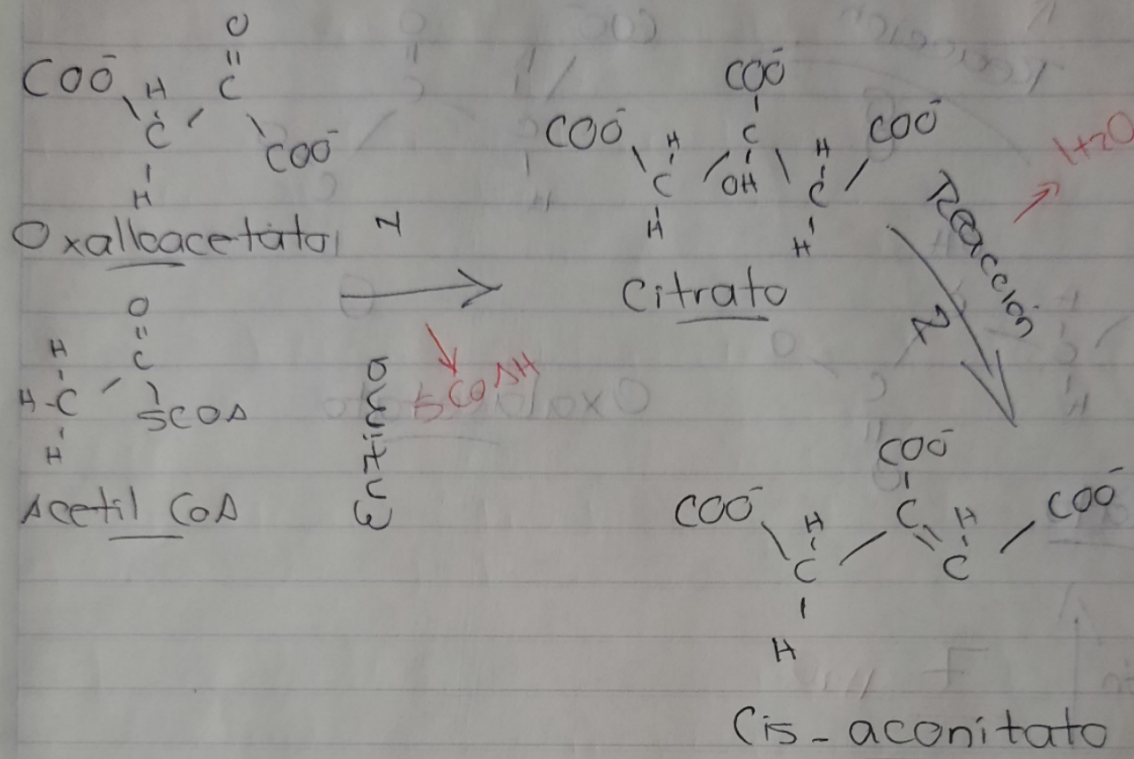 O
COO⁻ H C
C COO⁻
H
Oxalloacetato
O
H C
H-C SCOA
H
Acetil CoA
SCOAH
COO⁻
COO⁻ H C H COO⁻
C OH C
H H
Citrato
H2O
Reacción
2
COO⁻
COO⁻ H C H COO⁻
C C
H
Cis-aconitato